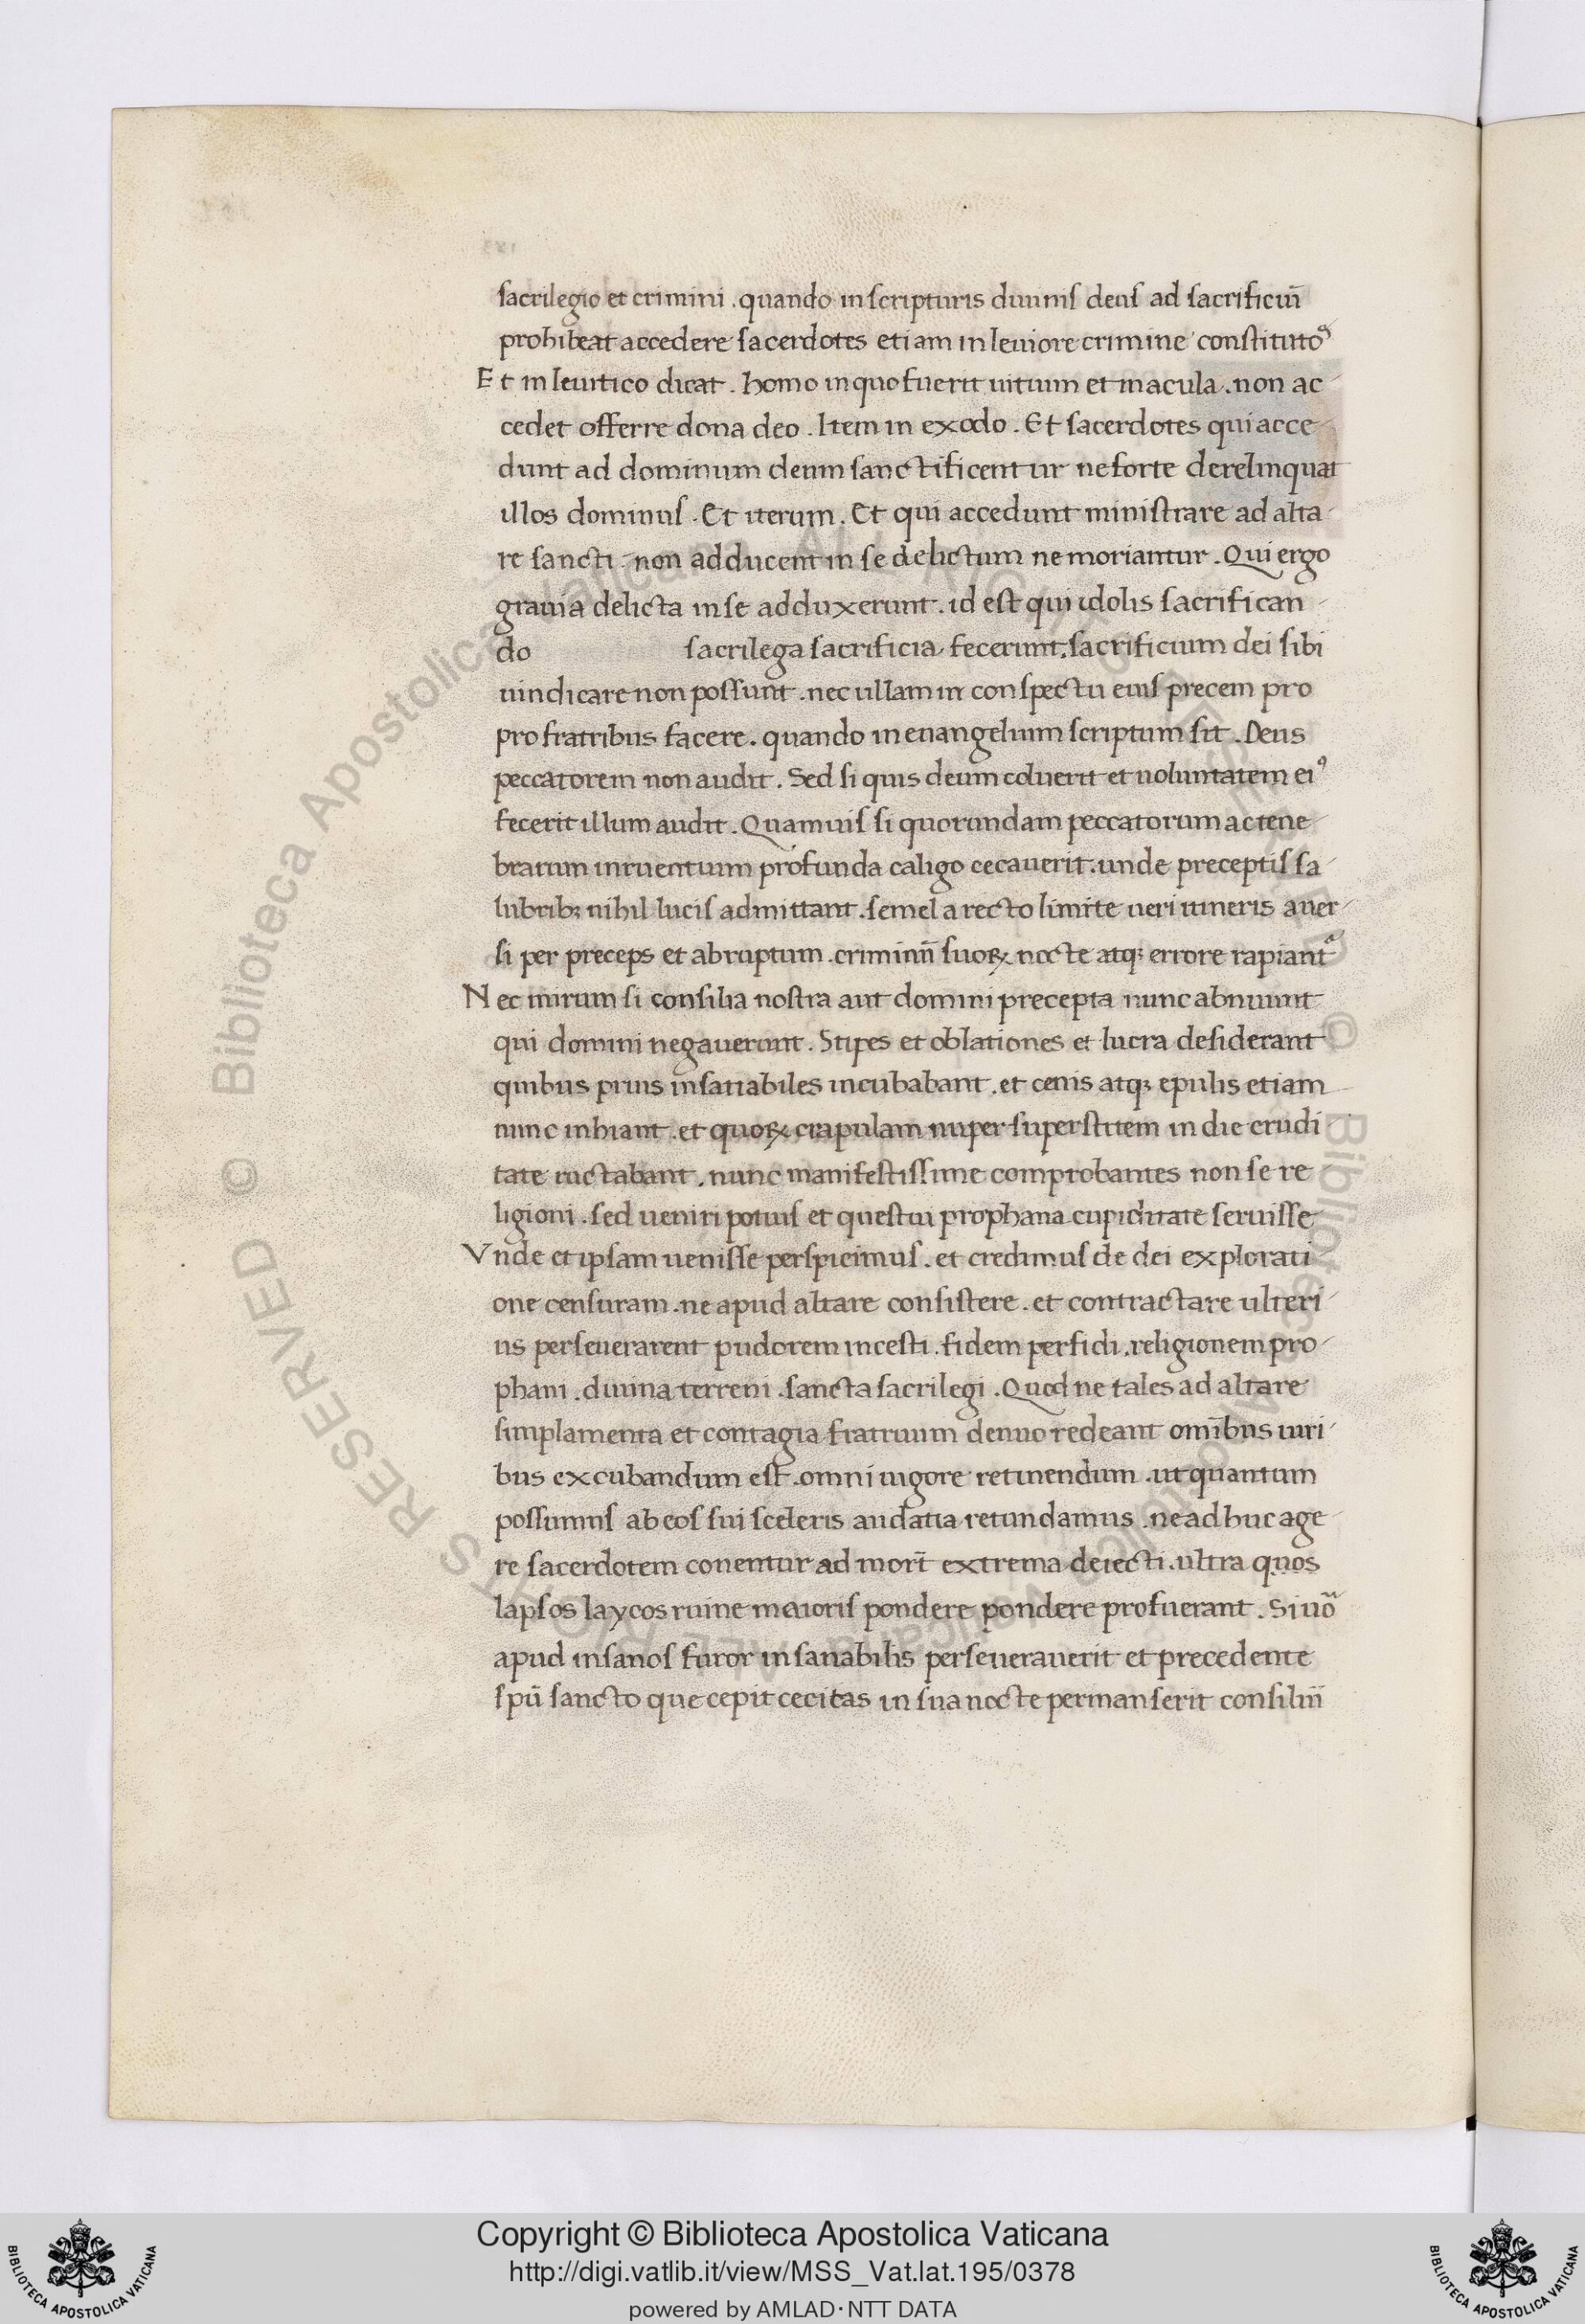 sacrilegio et crimini . quando in scripturis diuinis deus ad sacrificiū
prohibeat accedere sacerdotes etiam in leuiore crimine constitutoꝰ
Et in leuitico dicat . homo in quo fuerit uitium et macula . non ac
cedet offerre dona deo . Item in exodo . Et sacerdotes qui acce
dunt ad dominum deum sanctificentur ne forte derelinquat
illos dominus . Et iterum . Et qui accedunt ministrare ad alta
re sancti . non adducent in se delictum ne moriantur . Qui ergo
grauia delicta in se adduxerunt . id est qui idolis sacrifican
do sacrilega sacrificia fecerunt . sacrificium dei sibi
uindicare non possunt . nec ullam in conspectu eius precem pro
pro fratribus facere . quando in euangelium scriptum sit . Deus
peccatorem non audit . Sed si quis deum coluerit et uoluntatem eiꝰ
fecerit illum audit . Quamuis si quorundam peccatorum ac tene
brarum inruentium profunda caligo cecauerit . unde preceptis sa
lubribꝫ nihil lucis admittant . semel a recto limite ueri itineris auer
si per preceps et abruptum . criminū suoꝝ nocte atqꝫ errore rapiant
Nec mirum si consilia nostra aut domini precepta nunc abnuunt
qui domini negauerunt . Stipes et oblationes et lucra desiderant
quibus prius insatiabiles incubabant . et cenis atqꝫ epulis etiam
nunc inhiant . et quoꝝ crapulam nuper superstitem in die crudi
tate ructabant . nunc manifestissime comprobantes non se re
ligioni . sed ueniri potius et questui prophana cupiditate seruisse
Vnde et ipsam uenisse perspicimus . et credimus de dei explorati
one censuram . ne apud altare consistere . et contractare ulteri
us perseuerarent pudorem incesti . fidem perfidi . religionem pro
phani . diuina terreni . sancta sacrilegi . Quod ne tales ad altare
simplamenta et contagia fratruum denuo redeant omībus uiri
bus excubandum est . omni uigore retinendum . ut quantum
possumus ab eos sui sceleris audatia retundamus . ne adhuc age
re sacerdotem conentur ad mort̄ extrema deiecti . ultra quos
lapsos laycos ruine maioris pondere pondere profuerant . Si uo
apud insanos furor insanabilis perseuerauerit et precedente
spū sancto que cepit cecitas in sua nocte permanserit consiliū
© Biblioteca Apostolica Vaticana ALL RIGHTS RESERVED
© Biblioteca Apostolica Vaticana ALL RIGHTS RESERVED
Copyright © Biblioteca Apostolica Vaticana
http://digi.vatlib.it/view/MSS_Vat.lat.195/0378
powered by AMLAD·NTT DATA
BIBLIOTECA APOSTOLICA VATICANA
BIBLIOTECA APOSTOLICA VATICANA